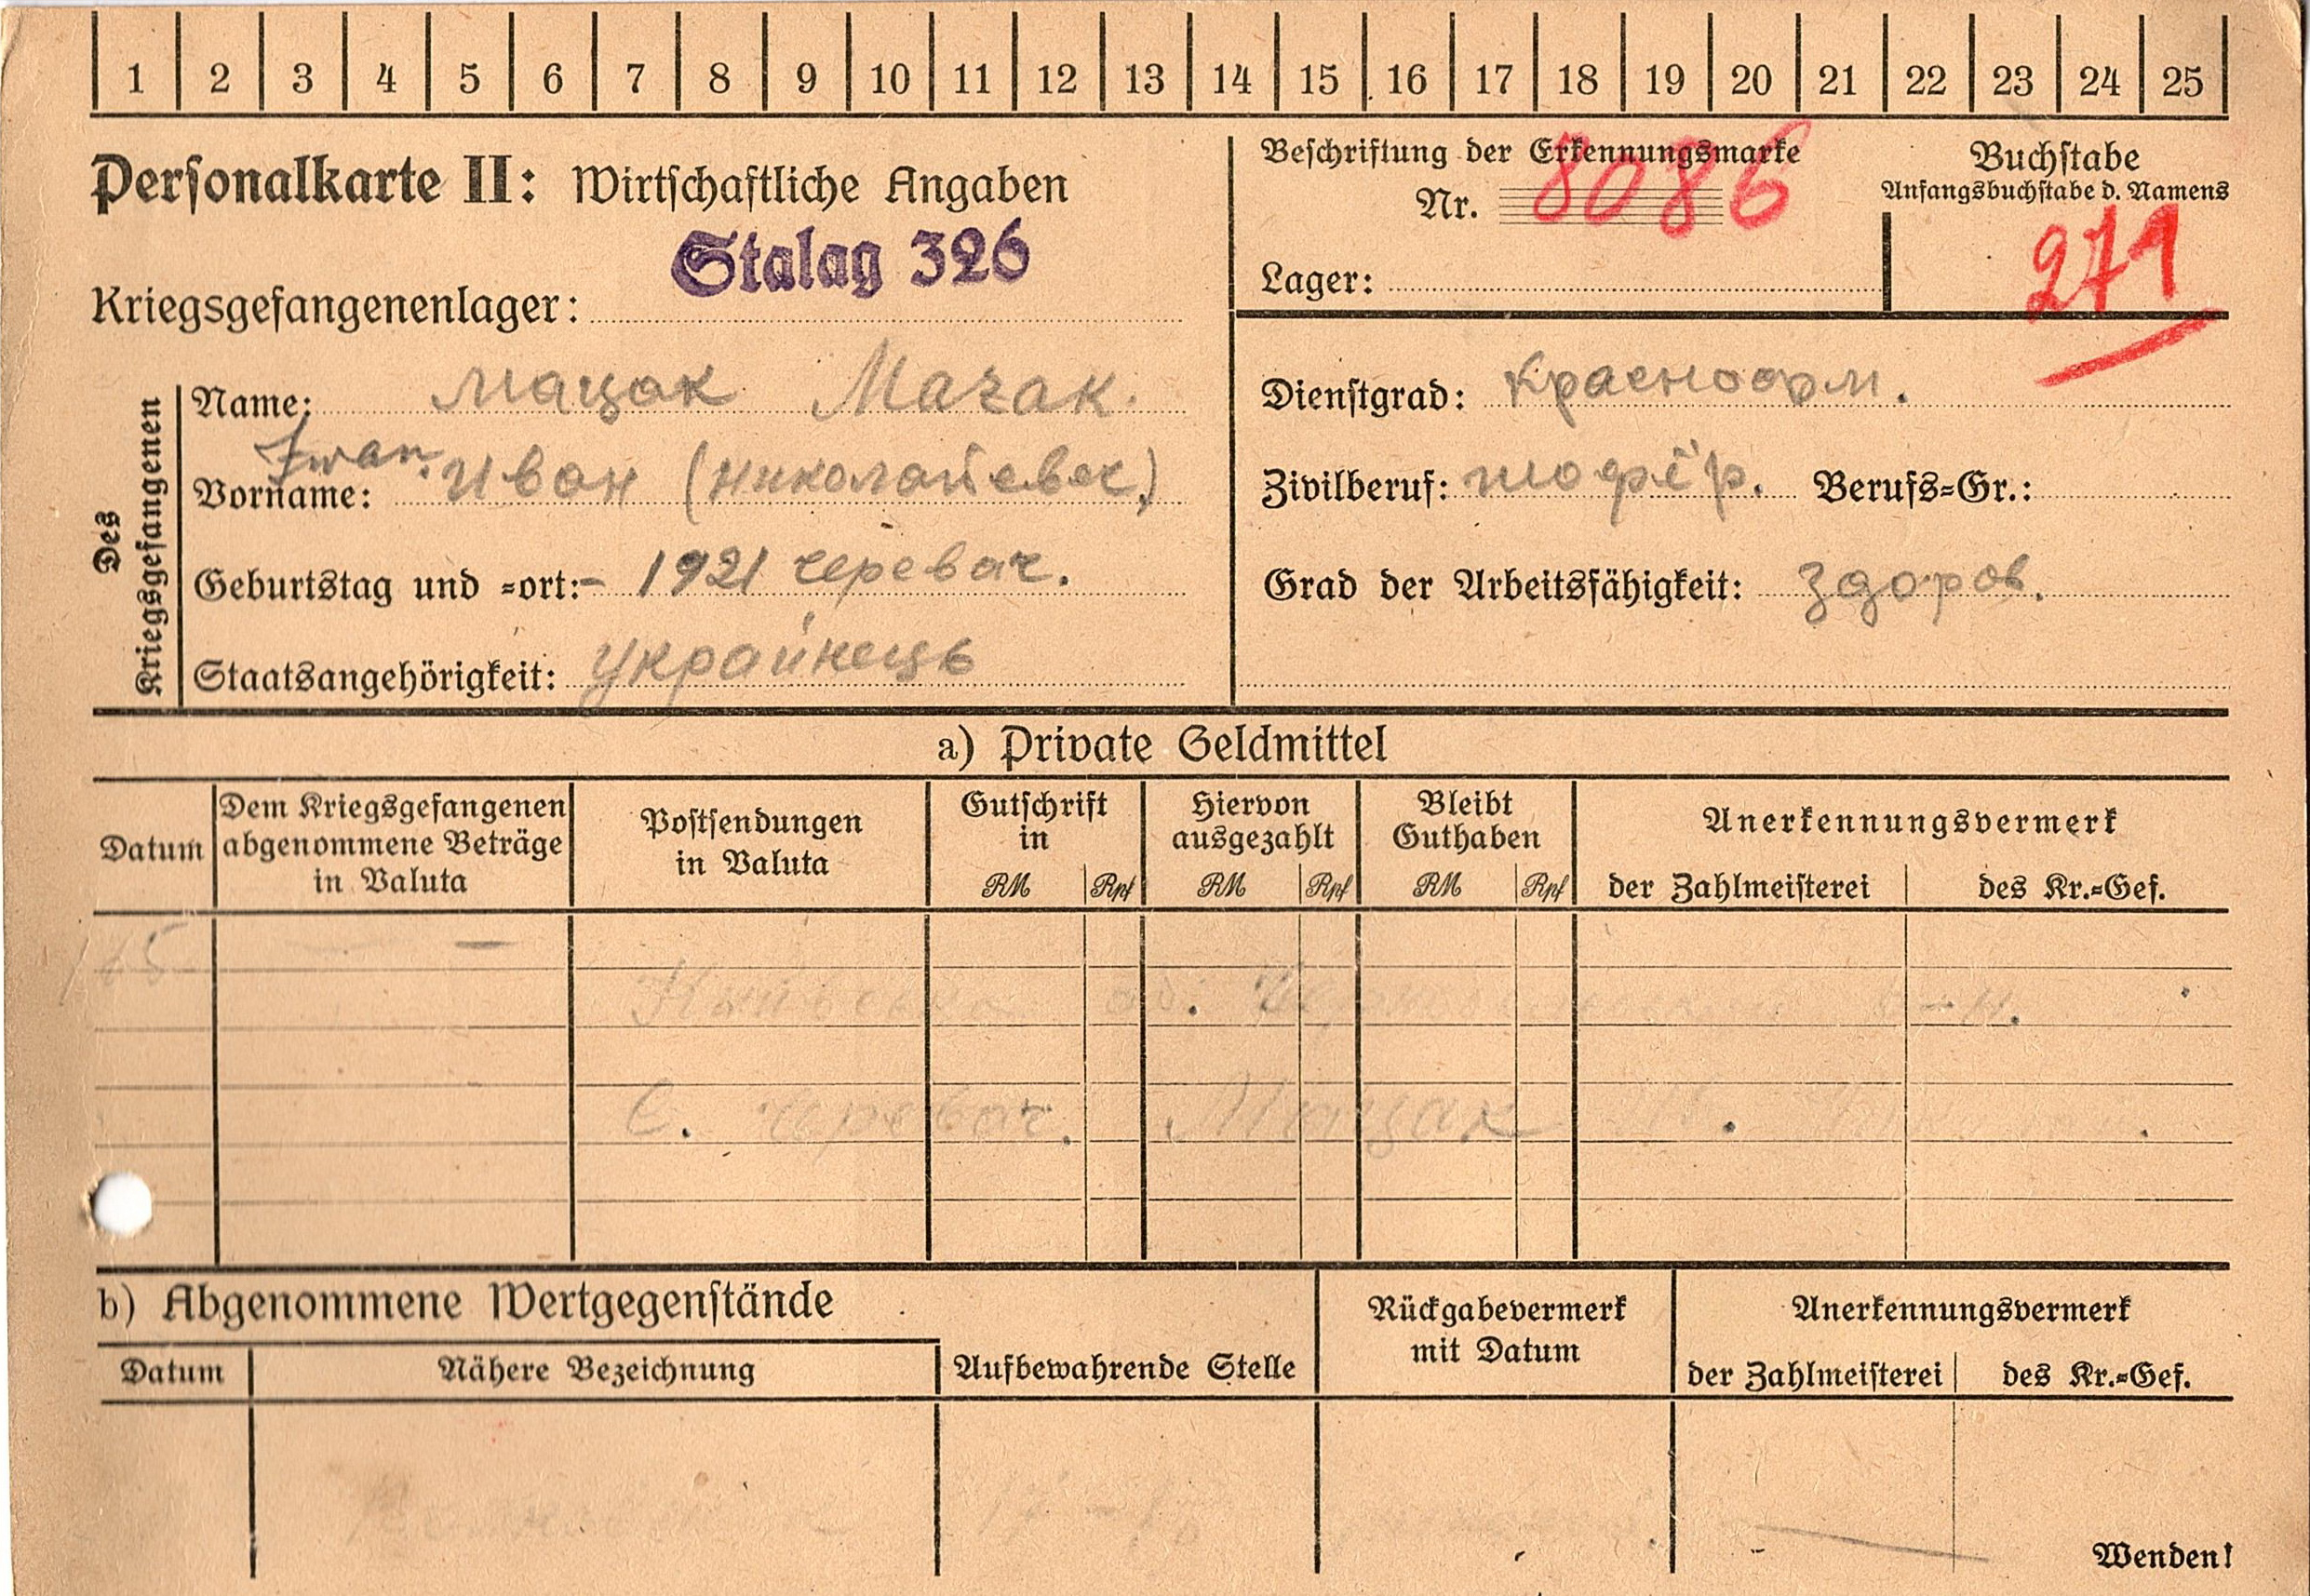 1 2 3 4 5 6 7 8 9 10 11 12 13 14 15 16 17 18 19 20 21 22 23 24 25
Personalkarte II: Wirtschaftliche Angaben
Stalag 326
Kriegsgefangenenlager:
Beschriftung der Erkennungsmarke
Nr. 8086
Lager:
Buchstabe
Anfangsbuchstabe d. Namens
271
Des Kriegsgefangenen
Name: Мацак Mazak.
Iwan.
Vorname: Иван (Николайевеч)
Geburtstag und =ort: - 1921 Черевач.
Staatsangehörigkeit: Украинець
Dienstgrad: Красноарм.
Zivilberuf: шофёр. Berufs=Gr.:
Grad der Arbeitsfähigkeit: Здоров.
a) Private Geldmittel
Datum
Dem Kriegsgefangenen abgenommene Beträge in Valuta
Postsendungen in Valuta
Gutschrift in
RM Rpf
Hiervon ausgezahlt
RM Rpf
Bleibt Guthaben
RM Rpf
Anerkennungsvermerk
der Zahlmeisterei des Kr.=Gef.
об. р-н.
с. Черевач. Мацак
b) Abgenommene Wertgegenstände
Datum Nähere Bezeichnung Aufbewahrende Stelle
Rückgabevermerk mit Datum
Anerkennungsvermerk
der Zahlmeisterei des Kr.=Gef.
Wenden!